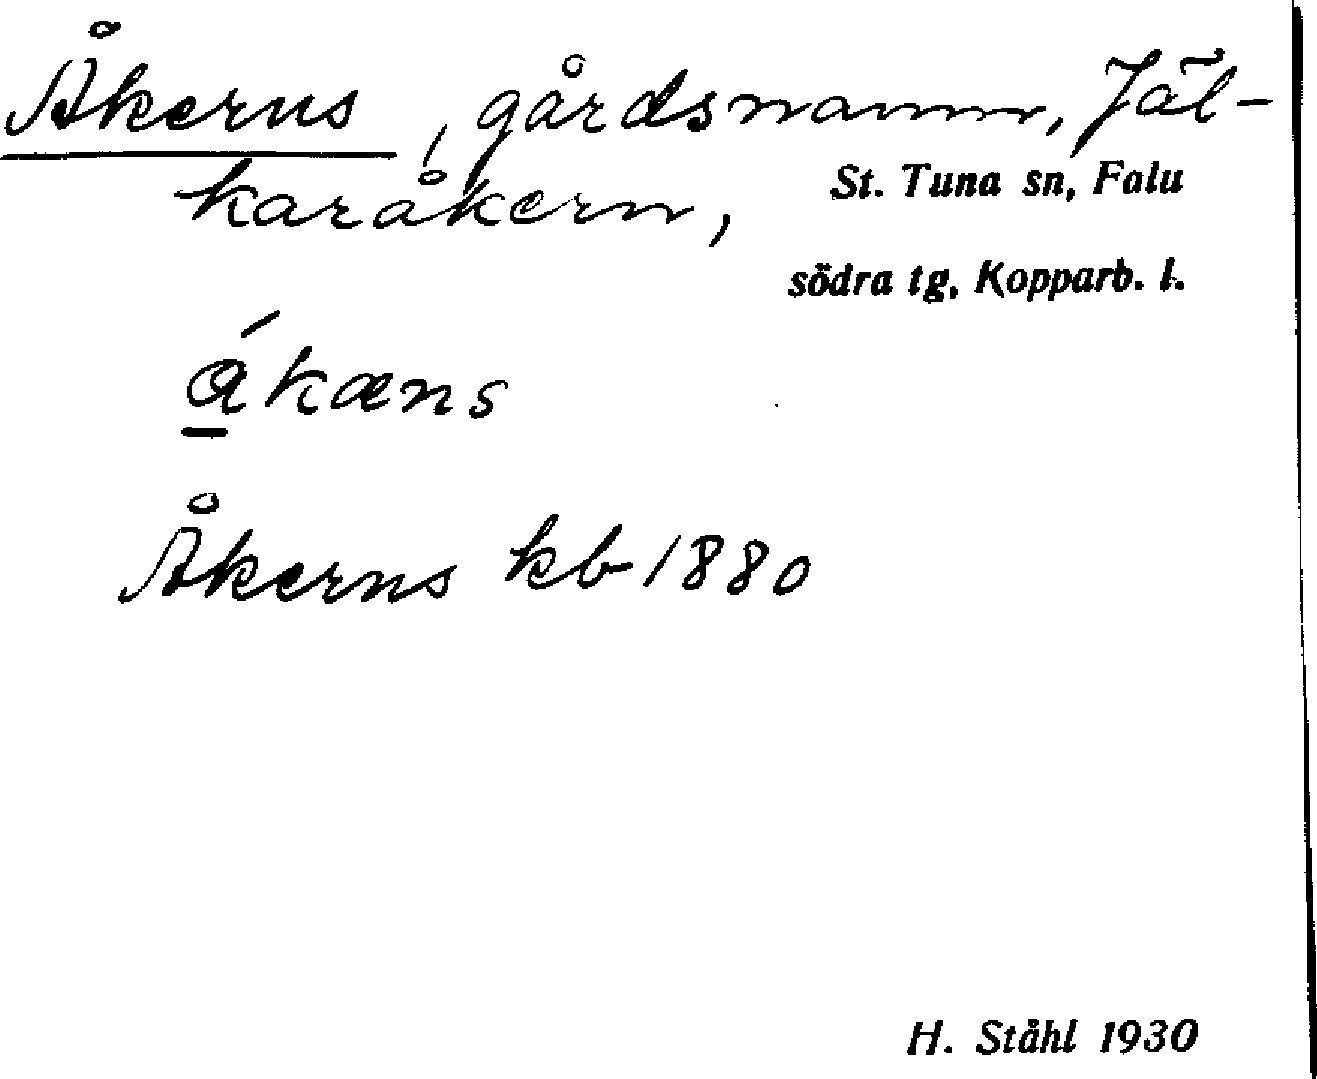 Åkerns, gårdsnamn, Jäl-
karåkern,
St. Tuna sn, Falu
södra tg, Kopparb. l.
ákæns
Åkerns kb 1880
H. Ståhl 1930